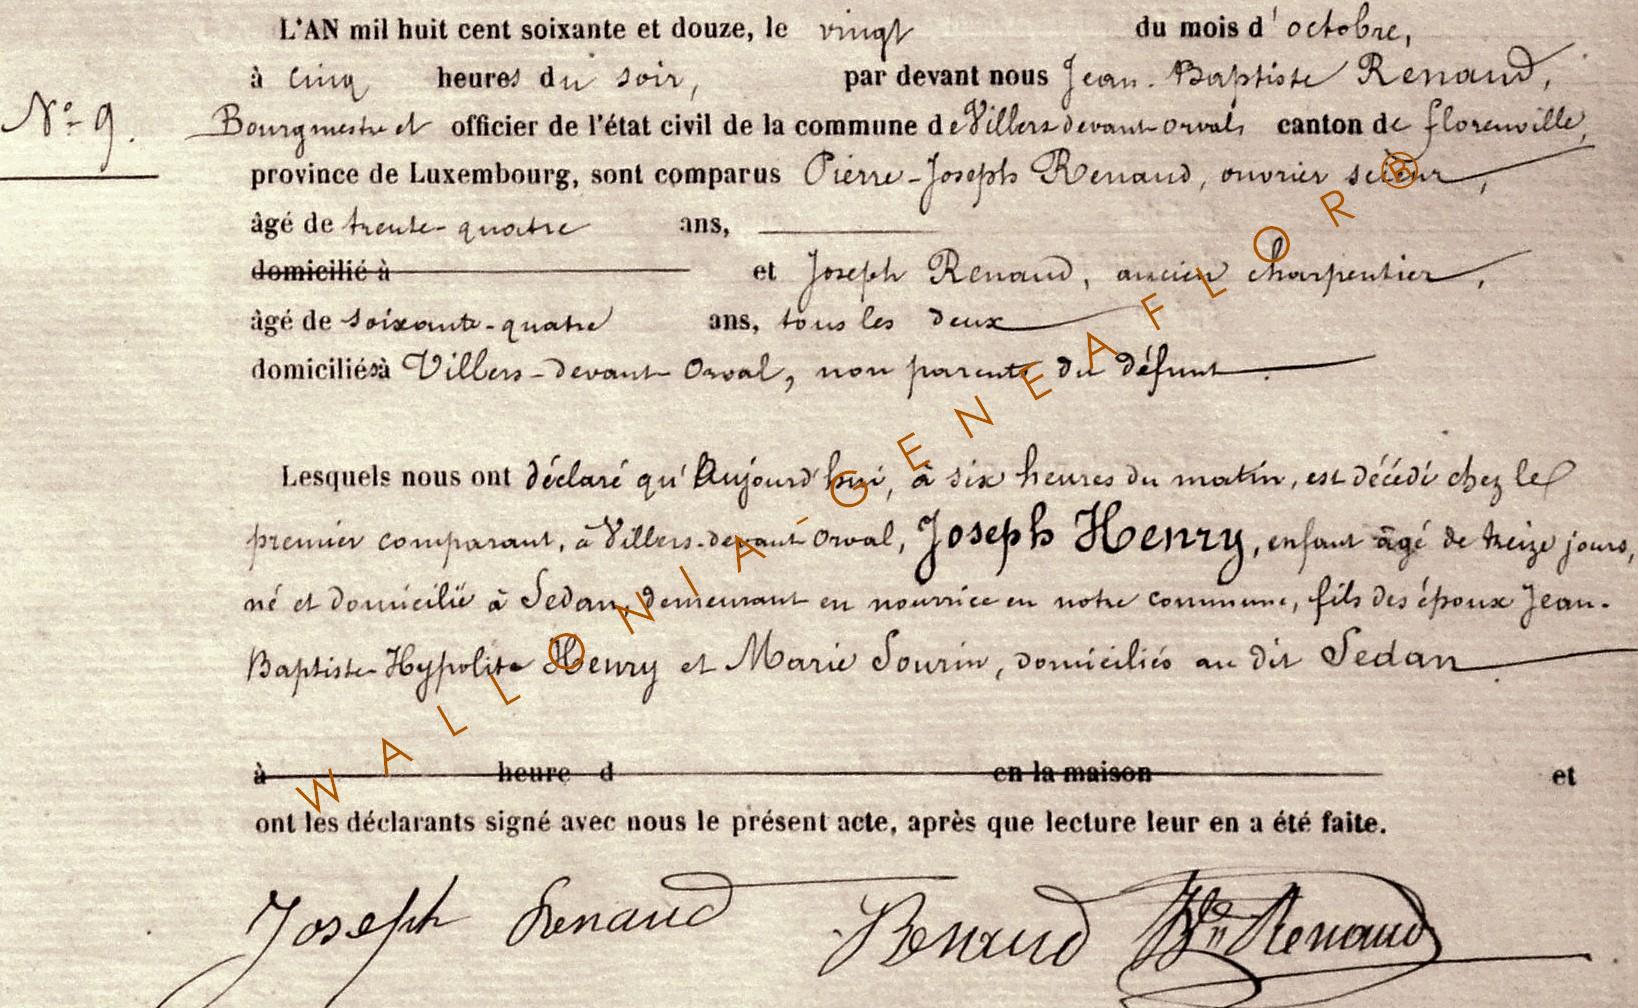 L'AN mil huit cent soixante et douze, le vingt du mois d'octobre,
à cinq heures du soir, par devant nous Jean-Baptiste Renaud,
N° 9. Bourgmestre et officier de l'état civil de la commune de Villers devant-orval, canton de florenville,
province de Luxembourg, sont comparus Pierre-Joseph Renaud, ouvrier scieur,
âgé de trente-quatre ans,
domicilié à et Joseph Renaud, ancien charpentier,
âgé de soixante-quatre ans, tous les deux
domiciliés à Villers-devant Orval, non parents du défunt.
Lesquels nous ont déclaré qu'Aujourd'hui, à six heures du matin, est décédé chez le
premier comparant, à Villers-devant Orval, Joseph Henry, enfant âgé de treize jours,
né et domicilié à Sedan, demeurant en nourrice en notre commune, fils des époux Jean-
Baptiste-Hypolite Henry et Marie Sourin, domiciliés au dit Sedan.
à heure d en la maison et
ont les déclarants signé avec nous le présent acte, après que lecture leur en a été faite.
Joseph Renaud Renaud Renaud
WALLONIA-GENEAFLOR®